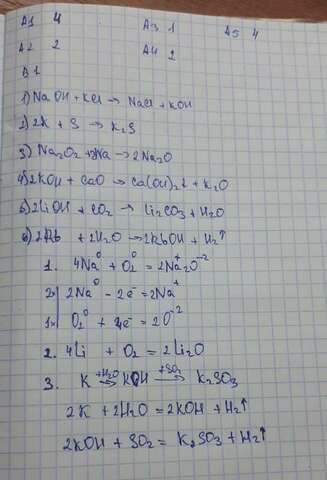 A1 4 A3 1 A5 4
A2 2 A4 2
B1
1) NaOH + KCl → NaCl + KOH
2) 2K + S → K₂S
3) Na₂O₂ + 2Na → 2Na₂O
4) 2KOH + CaO → Ca(OH)₂↓ + K₂O
5) 2LiOH + CO₂ → Li₂CO₃ + H₂O
6) 2Rb + 2H₂O → 2RbOH + H₂↑
1. 4Na⁰ + O₂⁰ = 2Na₂⁺O⁻²
2× | 2Na⁰ - 2e⁻ = 2Na⁺
1× | O₂⁰ + 4e⁻ = 2O⁻²
2. 4Li + O₂ = 2Li₂O
3. K +H₂O → KOH +SO₂ → K₂SO₃
2K + 2H₂O = 2KOH + H₂↑
2KOH + SO₂ = K₂SO₃ + H₂↑